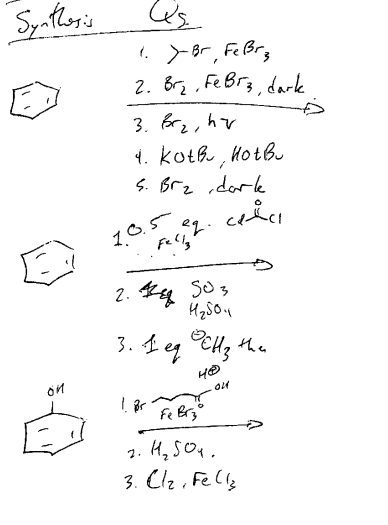 Synthesis Qs.
1. Br, FeBr3
2. Br2, FeBr3, dark
3. Br2, hν
4. KOtBu, HOtBu
5. Br2, dark
1. 0.5 eq. Cl O Cl
FeCl3
2. SO3
H2SO4
3. 1 eq ⊖CH3 then
H⊕
OH
1. Br O OH
FeBr3
2. H2SO4.
3. Cl2, FeCl3